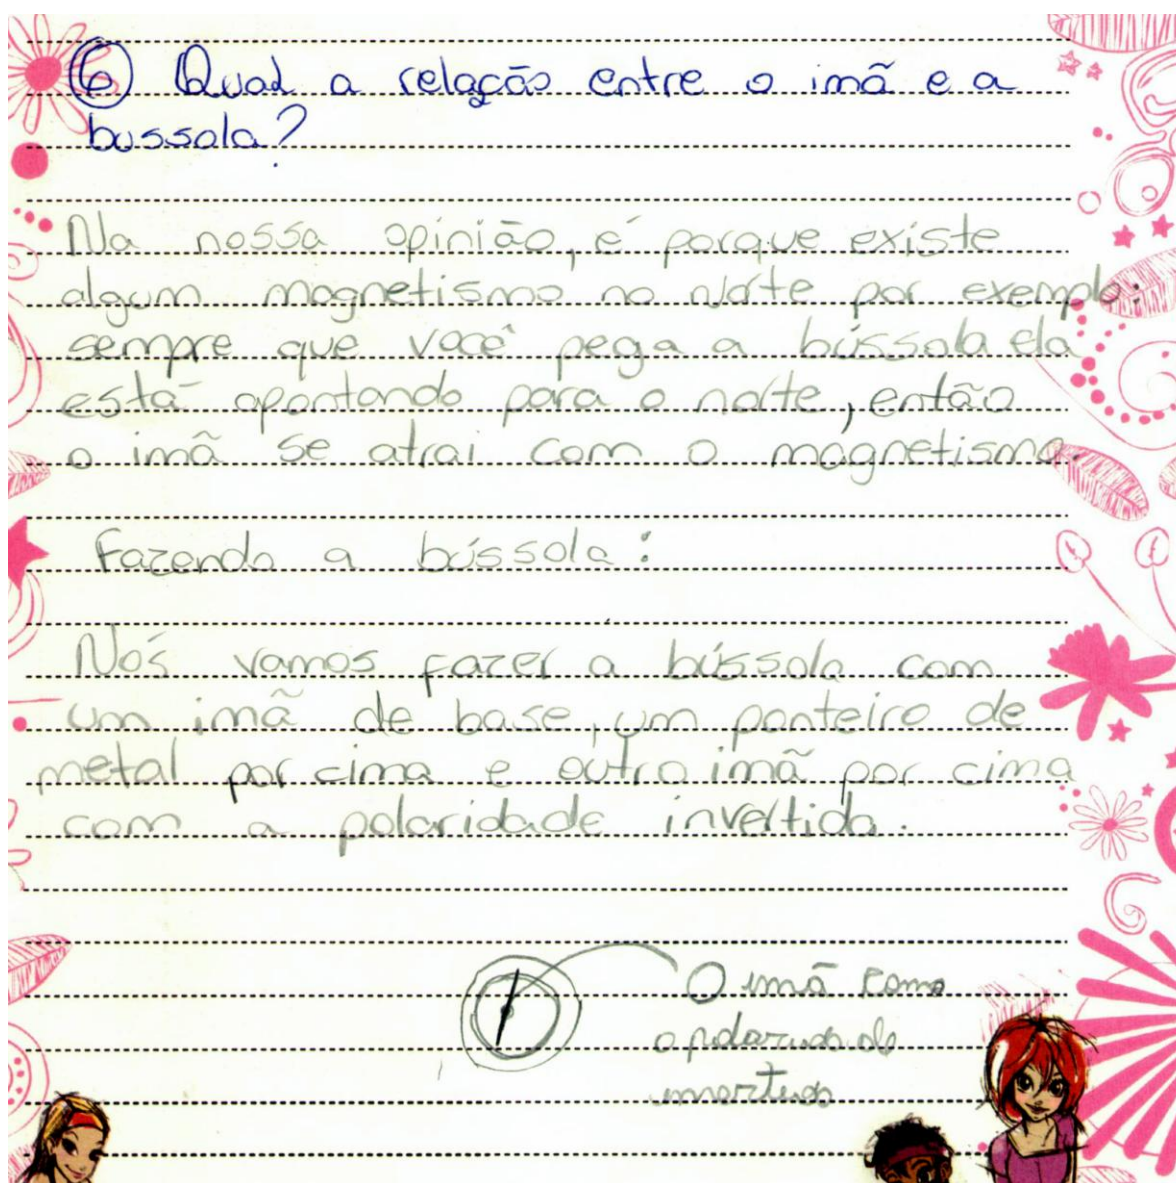 6 Qual a relação entre o imã e a
bussola?
Na nossa opinião, é porque existe
algum magnetismo no norte por exemplo:
sempre que você pega a bússola ela
está apontando para o norte, então
o imã se atrai com o magnetismo.
Fazendo a bússola:
Nós vamos fazer a bússola com
um imã de base, um ponteiro de
metal por cima e outro imã por cima
com a polaridade invertida.
O imã como